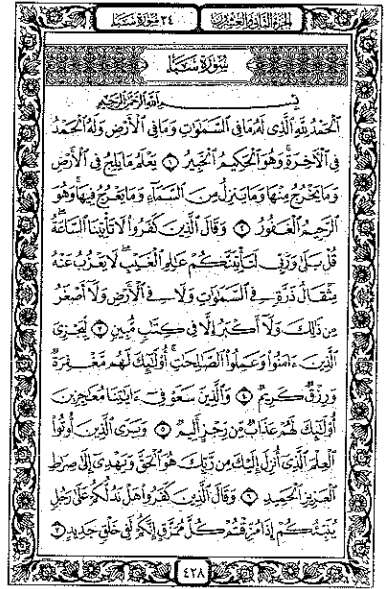 الجزء الثاني والعشرون ٣٤ سورة سبأ
سورة سبأ
بسم الله الرحمن الرحيم
ٱلۡحَمۡدُ لِلَّهِ ٱلَّذِى لَهُۥ مَا فِى ٱلسَّمَٰوَٰتِ وَمَا فِى ٱلۡأَرۡضِ وَلَهُ ٱلۡحَمۡدُ
فِى ٱلۡأٓخِرَةِۚ وَهُوَ ٱلۡحَكِيمُ ٱلۡخَبِيرُ ١ يَعۡلَمُ مَا يَلِجُ فِى ٱلۡأَرۡضِ
وَمَا يَخۡرُجُ مِنۡهَا وَمَا يَنزِلُ مِنَ ٱلسَّمَآءِ وَمَا يَعۡرُجُ فِيهَاۚ وَهُوَ
ٱلرَّحِيمُ ٱلۡغَفُورُ ٢ وَقَالَ ٱلَّذِينَ كَفَرُواْ لَا تَأۡتِينَا ٱلسَّاعَةُۖ
قُلۡ بَلَىٰ وَرَبِّى لَتَأۡتِيَنَّكُمۡ عَٰلِمِ ٱلۡغَيۡبِۖ لَا يَعۡزُبُ عَنۡهُ
مِثۡقَالُ ذَرَّةٍ فِى ٱلسَّمَٰوَٰتِ وَلَا فِى ٱلۡأَرۡضِ وَلَآ أَصۡغَرُ
مِن ذَٰلِكَ وَلَآ أَكۡبَرُ إِلَّا فِى كِتَٰبٍ مُّبِينٍ ٣ لِّيَجۡزِىَ
ٱلَّذِينَ ءَامَنُواْ وَعَمِلُواْ ٱلصَّٰلِحَٰتِۚ أُوْلَٰٓئِكَ لَهُم مَّغۡفِرَةٌ
وَرِزۡقٌ كَرِيمٌ ٤ وَٱلَّذِينَ سَعَوۡ فِىٓ ءَايَٰتِنَا مُعَٰجِزِينَ
أُوْلَٰٓئِكَ لَهُمۡ عَذَابٌ مِّن رِّجۡزٍ أَلِيمٌ ٥ وَيَرَى ٱلَّذِينَ أُوتُواْ
ٱلۡعِلۡمَ ٱلَّذِىٓ أُنزِلَ إِلَيۡكَ مِن رَّبِّكَ هُوَ ٱلۡحَقَّ وَيَهۡدِىٓ إِلَىٰ صِرَٰطِ
ٱلۡعَزِيزِ ٱلۡحَمِيدِ ٦ وَقَالَ ٱلَّذِينَ كَفَرُواْ هَلۡ نَدُلُّكُمۡ عَلَىٰ رَجُلٍ
يُنَبِّئُكُمۡ إِذَا مُزِّقۡتُمۡ كُلَّ مُمَزَّقٍ إِنَّكُمۡ لَفِى خَلۡقٍ جَدِيدٍ ٧
٤٢٨